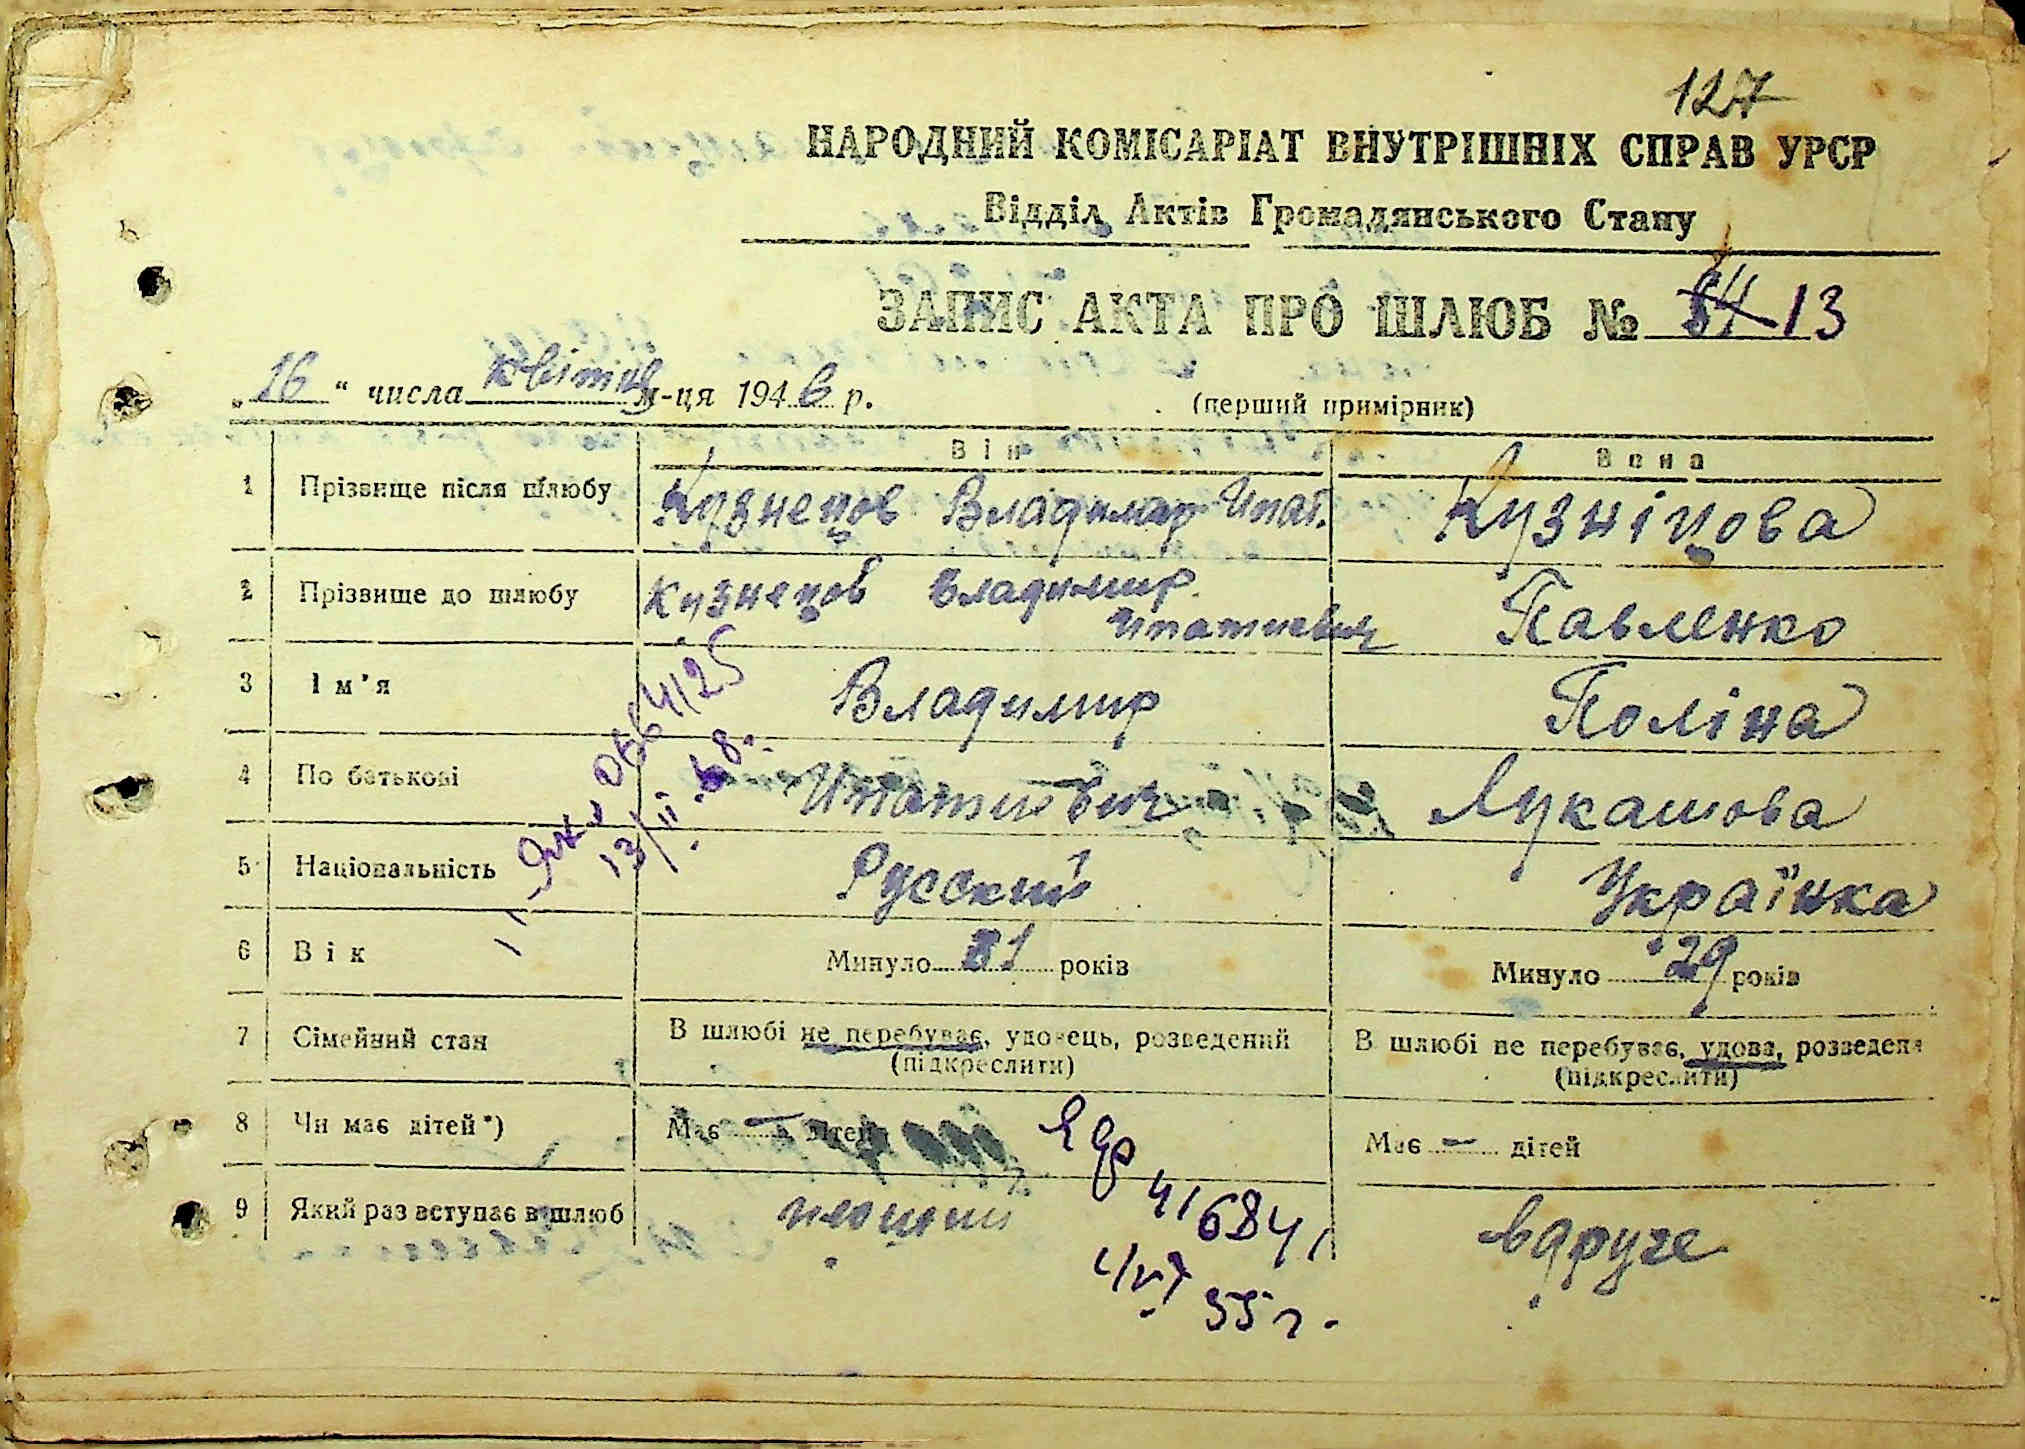 127
НАРОДНИЙ КОМІСАРІАТ ВНУТРІШНІХ СПРАВ УРСР
Відділ Актів Громадянського Стану
ЗАПИС АКТА ПРО ШЛЮБ № 13
„16“ числа квітня м-ця 1946 р. (перший примірник)
Він Вона
1 Прізвище після шлюбу Кузнецов Владимир Ипат. Кузніцова
2 Прізвище до шлюбу Кузнецов Владимир Ипатиевич Павленко
3 Ім’я Владимир Поліна
4 По батькові Ипатиевич Лукашова
5 Національність Русский Українка
6 Вік Минуло 31 років Минуло 29 років
7 Сімейний стан В шлюбі не перебуває, удовець, розведений (підкреслити) В шлюбі не перебуває, удова, розведена (підкреслити)
8 Чи має дітей*) Має — дітей Має — дітей
9 Який раз вступає в шлюб первый вдруге
13/II
416841
55 г.